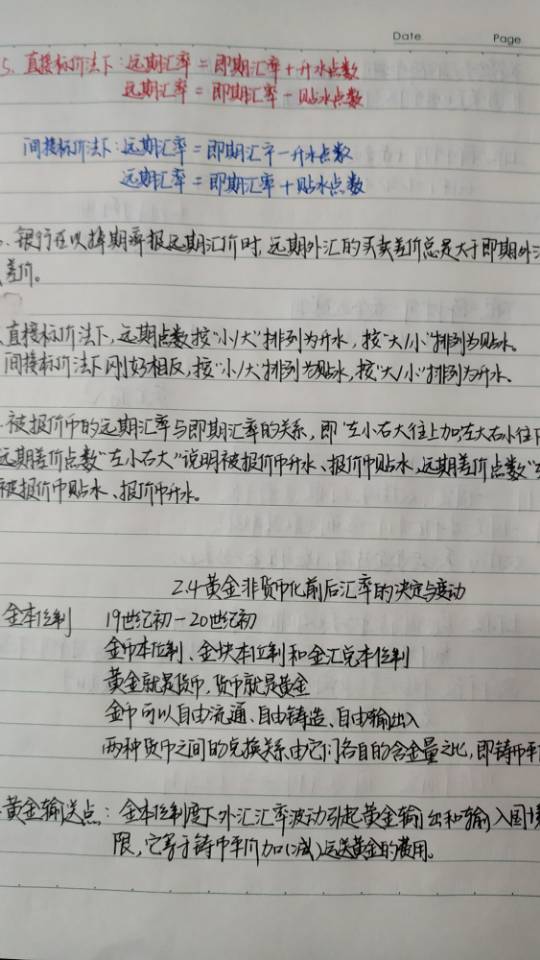 Date Page
5. 直接标价法下:远期汇率 = 即期汇率 + 升水点数
远期汇率 = 即期汇率 - 贴水点数
间接标价法下:远期汇率 = 即期汇率 - 升水点数
远期汇率 = 即期汇率 + 贴水点数
银行在以掉期率报远期汇价时,远期外汇的买卖差价总是大于即期外
差价。
直接标价法下,远期点数按"小/大"排列为升水,按"大/小"排列为贴水。
间接标价法下刚好相反,按"小/大"排列为贴水,按"大/小"排列为升水。
被报价币的远期汇率与即期汇率的关系,即"左小右大往上加,左大右小往
远期差价点数"左小右大"说明被报价币升水、报价币贴水,远期差价点数"
被报价币贴水、报价币升水。
2.4 黄金非货币化前后汇率的决定与变动
金本位制 19世纪初-20世纪初
金币本位制、金块本位制和金汇兑本位制
黄金就是货币,货币就是黄金
金币可以自由流通、自由铸造、自由输出入
两种货币之间的兑换关系由它们各自的含金量之比,即铸币平
黄金输送点:金本位制度下外汇汇率波动引起黄金输出和输入国
限,它等于铸币平价加(减)运送黄金的费用。